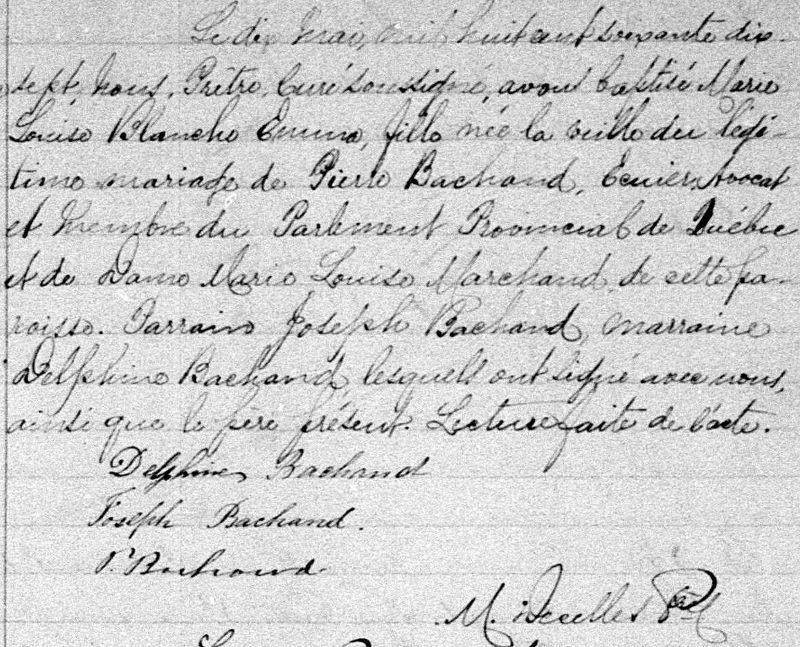 Le dix Mai, mil huit cent soixante dix-
sept, Nous, Prêtre, Curé soussigné, avons baptisé Marie
Louise Blanche Emma, fille née la veille du légi-
time mariage de Pierre Bachand, Ecuier, Avocat
et Membre du Parlement Provincial de Québec
et de Dame Marie Louise Marchand, de cette pa-
roisse. Parrain Joseph Bachand, marraine
Delphine Bachand, lesquels ont signé avec nous,
ainsi que le père présent. Lecture faite de l'acte.
Delphine Bachand
Joseph Bachand.
P. Bachand.
M. Decelles